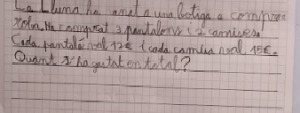 La Lluna ha anat a una botiga a comprar
roba. Ha comprat 3 pantalons i 2 camises.
Cada pantaló val 12€ i cada camisa val 15€.
Quant s'ha gastat en total?